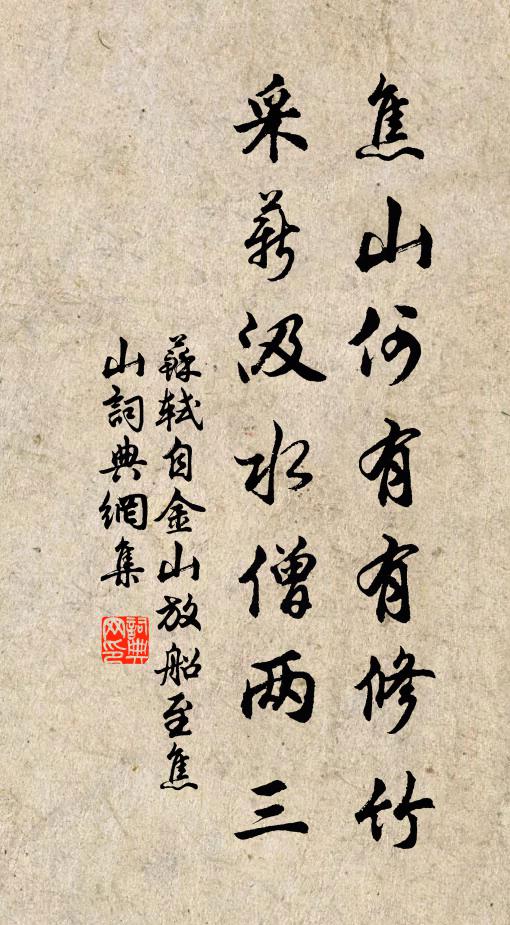 焦山何有有修竹
采薪汲水僧两三
蘇軾自金山放船至焦
山詞典網集
詞典
网印